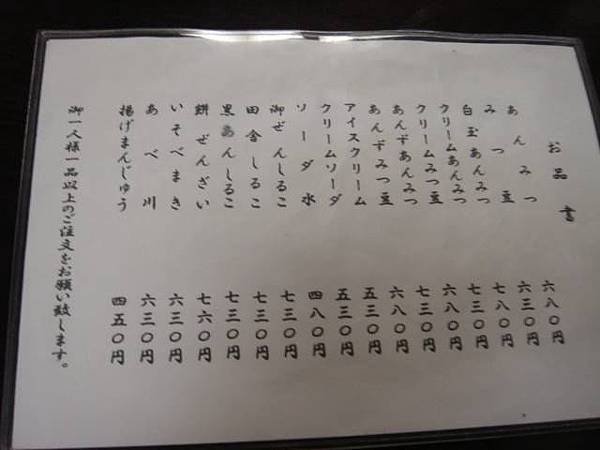 お品書
あんみつ 六八〇円
みつ豆 六三〇円
白玉あんみつ 七八〇円
クリームあんみつ 七三〇円
クリームみつ豆 六八〇円
あんずあんみつ 七三〇円
あんずみつ豆 六八〇円
アイスクリーム 五三〇円
クリームソーダ 五三〇円
ソーダ水 四八〇円
御ぜんしるこ 七三〇円
田舎しるこ 七三〇円
黒あんしるこ 七三〇円
餅ぜんざい 七六〇円
いそべまき 六三〇円
あべ川 六三〇円
揚げまんじゅう 四五〇円
御一人様一品以上のご注文をお願い致します。